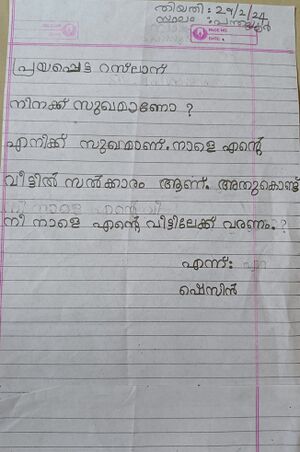 തിയതി : 29/2/24
സ്ഥലം :
PAGE NO.
DATE:
പ്രയപ്പെട്ട റസ്‌ലാന്
നിനക്ക് സുഖമാണോ ?
എനിക്ക് സുഖമാണ്. നാളെ എന്റെ
വീട്ടിൽ സൽക്കാരം ആണ്. അതുകൊണ്ട്
നീ നാളെ എന്റെ വീട്ടിലേക്ക് വരണം. ?
എന്ന് :
ഷെസിൻ